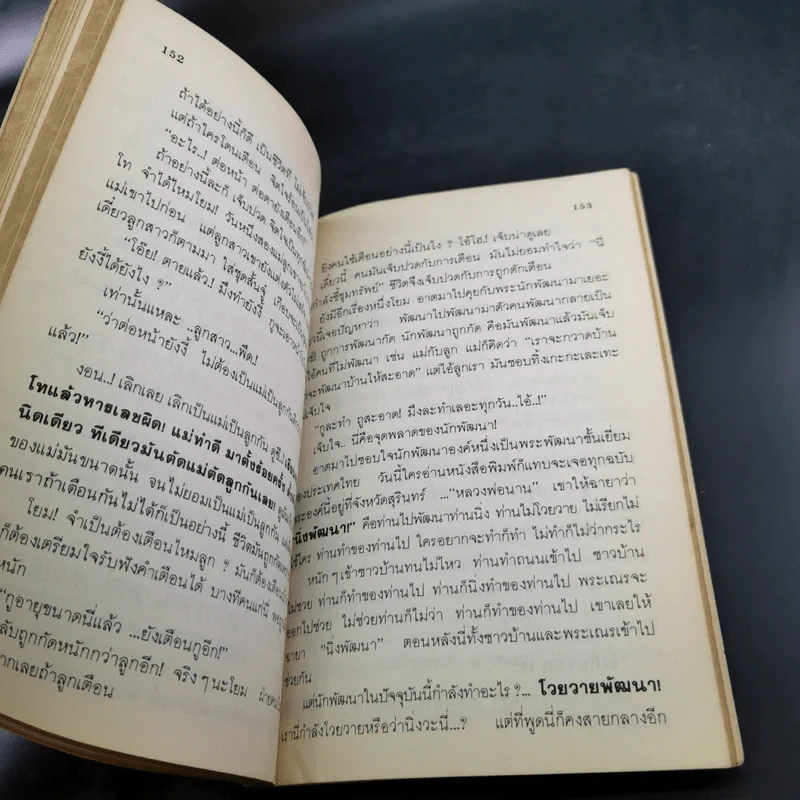 152
ถ้าได้อย่างนี้ก็ดี เป็นชีวิตที่
แต่ถ้าใครโดนเตือน จิตใจ
“อะไร..! ต่อหน้า ต่อตายังเตือนอีก”
ถ้าอย่างนี้ละก็ เจ็บปวด
โท จำได้ไหมโยม! วันหนึ่งสองแม่ลูก
แม่เขาไปก่อน แต่ลูกสาวเขายังแต่งตัว
เดี๋ยวลูกสาวก็ตามมา ใส่ชุดสั้นจู๋
“โอ๊ย! ตายแล้ว! มึงทำยังงี้
ยังงี้ได้ยังไง ?”
เท่านั้นแหละ ..ลูกสาว...ฟึด!
“ว่าต่อหน้ายังงี้ ไม่ต้องเป็นแม่เป็นลูก
แล้ว!”
งอน..! เลิกเลย เลิกเป็นแม่เป็นลูกกัน
โทแล้วหารเลขผิด! แม่ทำดี มาตั้งร้อยครั้ง
นิดเดียว ทีเดียวมันตัดแม่ตัดลูกกันเลย!
ของแม่มันขนาดนั้น จนไม่ยอมเป็นแม่เป็นลูกกัน
คนเราถ้าเตือนกันไม่ได้ก็เป็นอย่างนี้ ชีวิตมันถูก
โยม! จำเป็นต้องเตือนไหมลูก ? มันก็ต้องเตือน
ก็ต้องเตรียมใจรับฟังคำเตือนได้ บางทีคนแก่นี่
หนัก
“กูอายุขนาดนี้แล้ว ...ยังเตือนกูอีก!”
ลับถูกกัดหนักกว่าลูกอีก! จริงๆนะโยม
ากเลยถ้าลูกเตือน
153
ยิงคนใช้เตือนอย่างนี้เป็นไง ? โอ้โฮ! เจ็บน่าดูเลย
เดี๋ยวนี้ คนมันเจ็บปวดกับการเตือน มันไม่ยอมทำใจว่า “นี่
กำลังชี้ขุมทรัพย์” ชีวิตจึงเจ็บปวดกับการถูกตักเตือน
ยังมีอีกเรื่องหนึ่งโยม อาตมาไปคุยกับพระนักพัฒนามาเยอะ
วนี้เจอปัญหาว่า พัฒนาไปพัฒนามาตัวคนพัฒนากลายเป็น
ถูกการพัฒนากัด นักพัฒนาถูกกัด คือมันพัฒนาแล้วมันเจ็บ
คนที่ไม่พัฒนา เช่น แม่กับลูก แม่ก็คิดว่า “เราจะกวาดบ้าน
จะพัฒนาบ้านให้สะอาด” แต่ไอ้ลูกเรา มันชอบทิ้งเกะกะเละเทะ
เจ็บใจ
“กูละทำ กูสะอาด! มึงละทำเลอะทุกวัน..ไอ้..!”
เจ็บใจ.. นี่คือจุดพลาดของนักพัฒนา!
อาตมาไปชอบใจนักพัฒนาองค์หนึ่งเป็นพระพัฒนาชั้นเยี่ยม
ของประเทศไทย วันนี้ใครอ่านหนังสือพิมพ์ก็แทบจะเจอทุกฉบับ
พระองค์นี้อยู่ที่จังหวัดสุรินทร์ ...“หลวงพ่อนาน” เขาให้ฉายาว่า
“นิ่งพัฒนา!” คือท่านไปพัฒนาท่านนิ่ง ท่านไม่โวยวาย ไม่เรียกไม่
ใช้ใคร ท่านทำของท่านไป ใครอยากจะทำก็ทำ ไม่ทำก็ไม่ว่ากระไร
หนักๆเข้าชาวบ้านทนไม่ไหว ท่านทำถนนเข้าไป ชาวบ้าน
ไม่ช่วย ท่านก็ทำของท่านไป ท่านก็นิ่งทำของท่านไป พระเณรจะ
ออกไปช่วย ไม่ช่วยท่านก็ไม่ว่า ท่านก็ทำของท่านไป เขาเลยให้
ฉายา “นิ่งพัฒนา” ตอนหลังนี่ทั้งชาวบ้านและพระเณรเข้าไป
ช่วยกัน
แต่นักพัฒนาในปัจจุบันนี้กำลังทำอะไร ?... โวยวายพัฒนา!
เรานี่กำลังโวยวายหรือว่านิ่งวะนี่...? แต่ที่พูดนี่ก็คงสายกลางอีก